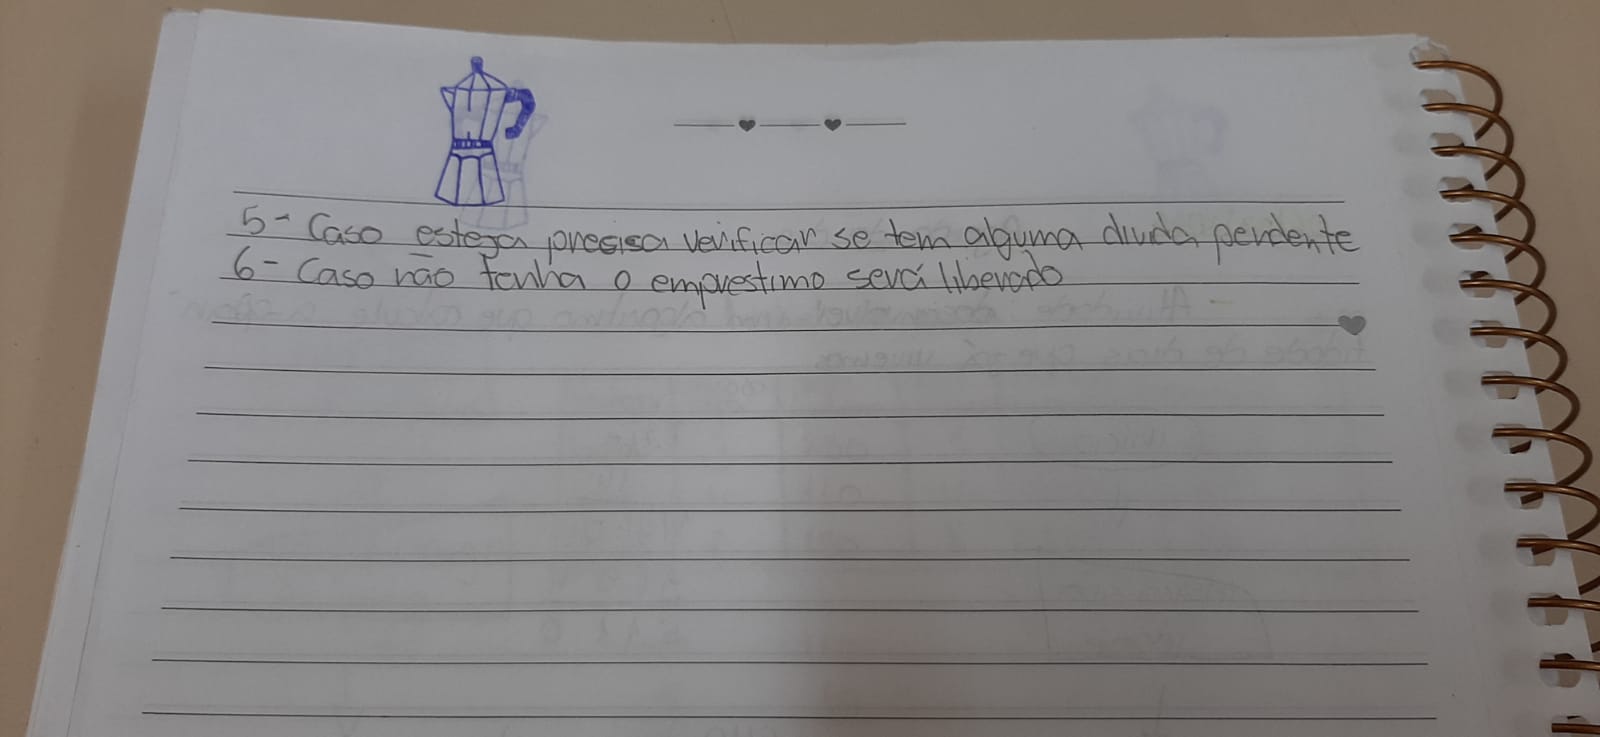 5- Caso estega precisa verificar se tem alguma divida pendente
6- Caso não tenha o emprestimo será liberado